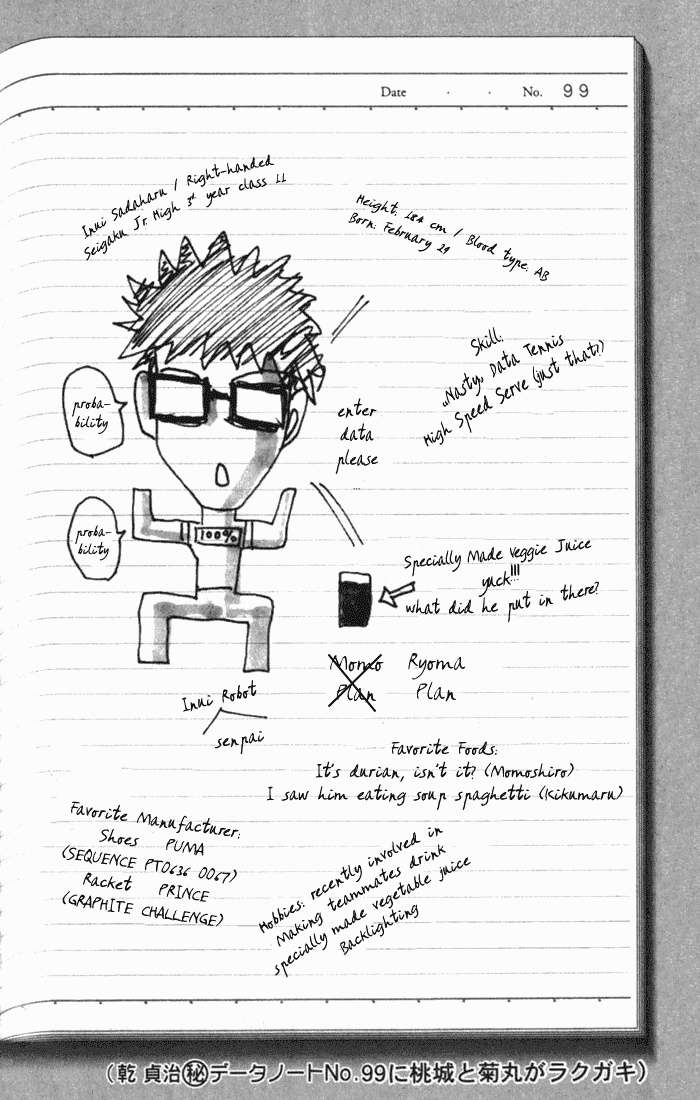 Date . . No. 99
Inui Sadaharu / Right-handed
Seigaku Jr. High 3rd year class 11
Height: 184 cm / Blood type: AB
Born: February 29
Skill:
"Nasty" Data Tennis
High Speed Serve (just that?)
proba-
bility
enter
data
please
...
proba-
bility
100%
Specially Made Veggie Juice
yuck!!!
what did he put in there?
Momo
Plan
Ryoma
Plan
Inui Robot
senpai
Favorite Foods:
It's durian, isn't it? (Momoshiro)
I saw him eating soup spaghetti (Kikumaru)
Favorite Manufacturer:
Shoes PUMA
(SEQUENCE PT0636 0067)
Racket PRINCE
(GRAPHITE CHALLENGE)
Hobbies: recently involved in
Making teammates drink
specially made vegetable juice
Backlighting
(乾 貞治㊙データノートNo.99に桃城と菊丸がラクガキ)